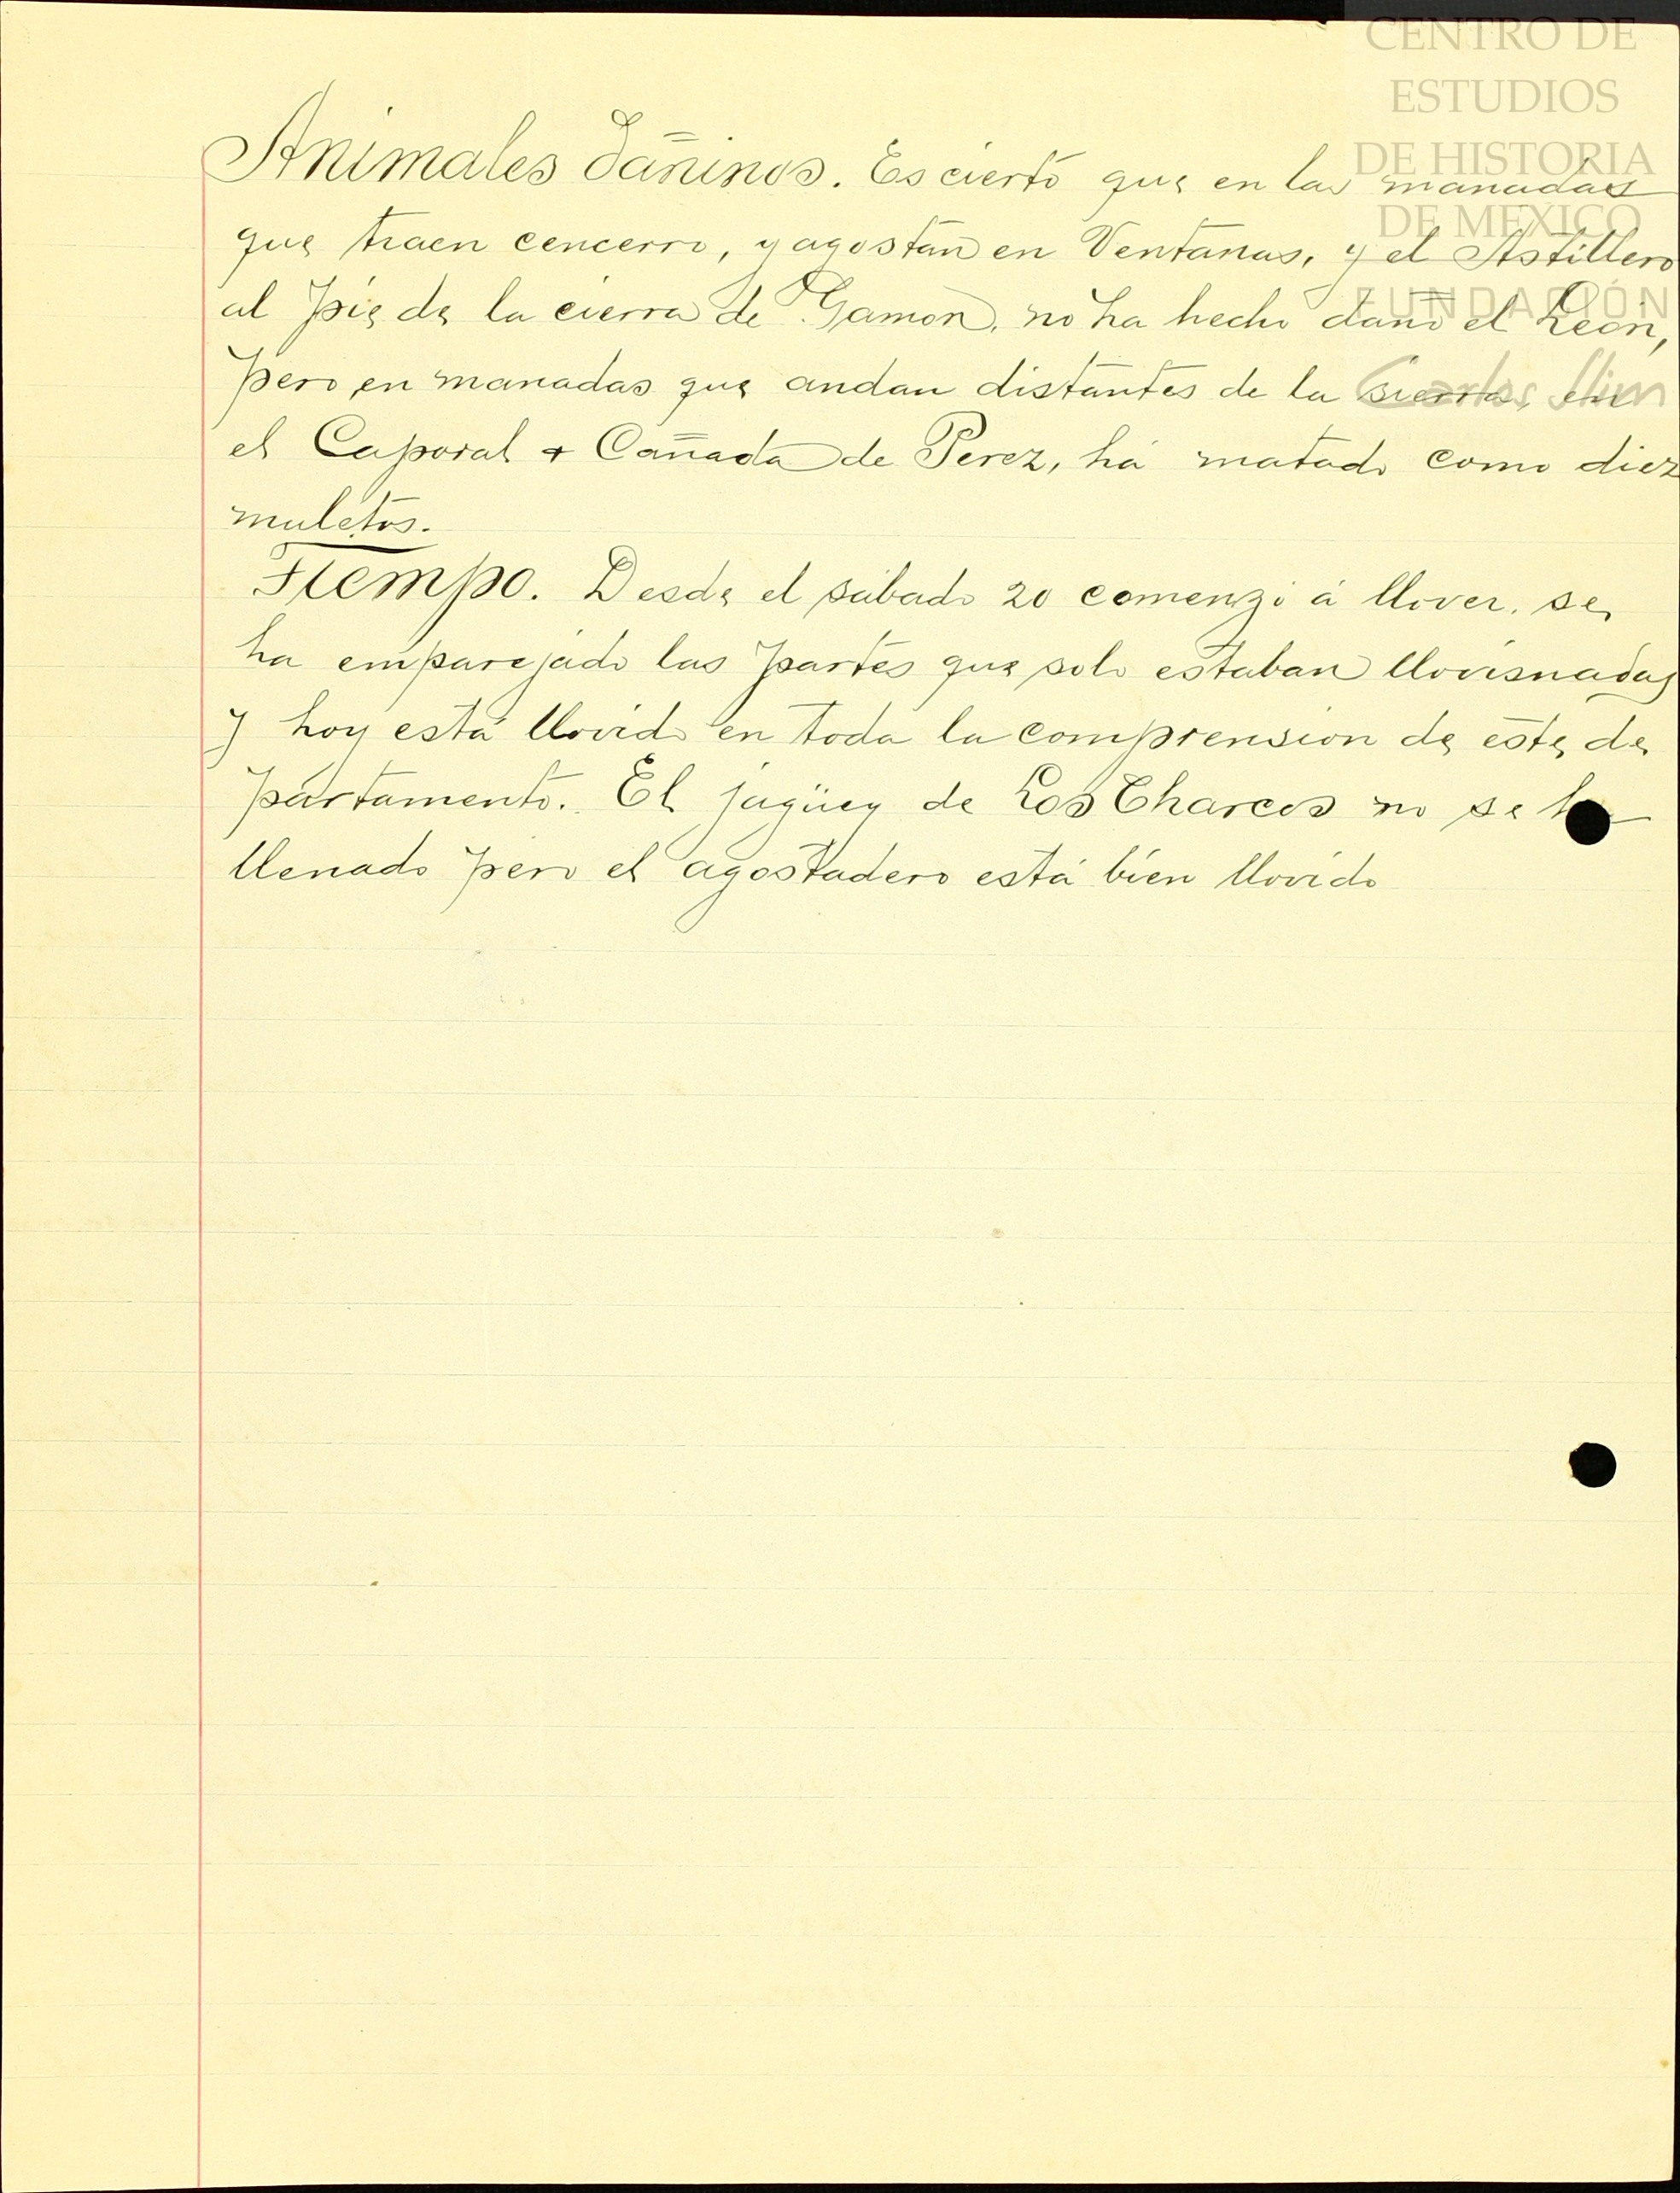 CENTRO DE
ESTUDIOS
DE HISTORIA
DE MÉXICO
FUNDACIÓN
Carlos Slim
Animales dañinos. Es cierto que en las manadas
que traen cencerro, y agostan en Ventanas, y el Astillero
al pie de la cierra de Gamon, no ha hecho daño el León,
pero en manadas que andan distantes de la sierra, en
el Caporal + Cañada de Perez, há matado como diez
muletos.
Tiempo. Desde el sábado 20 comenzó á llover. se
ha emparejado las partes que solo estaban lloviznadas
y hoy está llovido en toda la comprension de este de
partamento. El jagüey de Los Charcos no se
llenado pero el agostadero está bien llovido